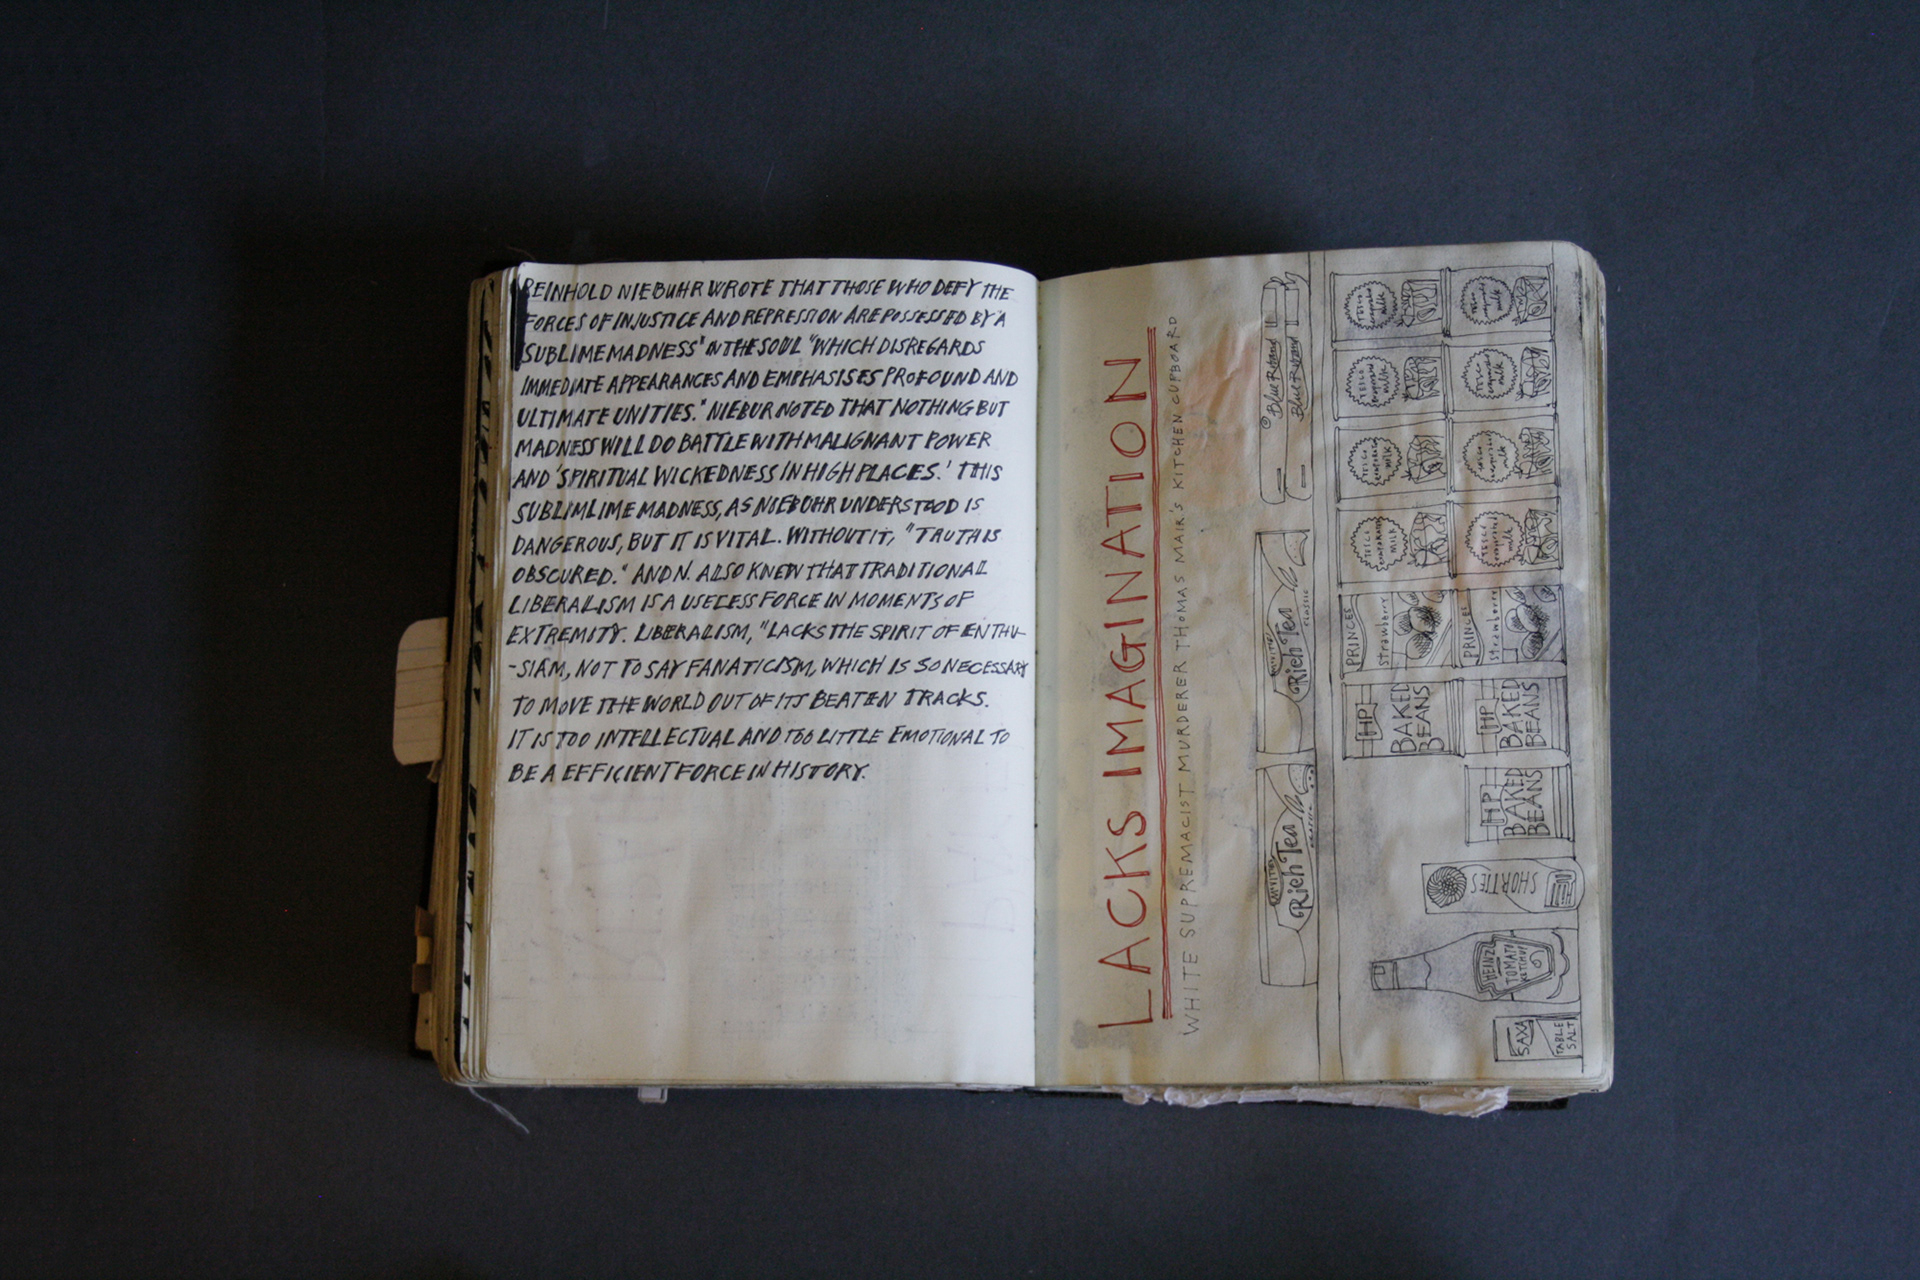 REINHOLD NIEBUHR WROTE THAT THOSE WHO DEFY THE
FORCES OF INJUSTICE AND REPRESSION ARE POSSESSED BY 'A
SUBLIME MADNESS' IN THE SOUL "WHICH DISREGARDS
IMMEDIATE APPEARANCES AND EMPHASISES PROFOUND AND
ULTIMATE UNITIES." NIEBUR NOTED THAT NOTHING BUT
MADNESS WILL DO BATTLE WITH MALIGNANT POWER
AND 'SPIRITUAL WICKEDNESS IN HIGH PLACES.' THIS
SUBLIMLIME MADNESS, AS NIEBUHR UNDERSTOOD IS
DANGEROUS, BUT IT IS VITAL. WITHOUT IT, "TRUTH IS
OBSCURED." AND N. ALSO KNEW THAT TRADITIONAL
LIBERALISM IS A USELESS FORCE IN MOMENTS OF
EXTREMITY. LIBERALISM, "LACKS THE SPIRIT OF ENTHU-
-SIAM, NOT TO SAY FANATICISM, WHICH IS SO NECESSARY
TO MOVE THE WORLD OUT OF ITS BEATEN TRACKS.
IT IS TOO INTELLECTUAL AND TOO LITTLE EMOTIONAL TO
BE A EFFICIENT FORCE IN HISTORY.
LACKS IMAGINATION
WHITE SUPREMACIST MURDERER THOMAS MAIR'S KITCHEN CUPBOARD
Rich Tea
Rich Tea
classic
Blue Riband
Blue Riband
SAXA
TABLE
SALT
HEINZ
TOMATO
KETCHUP
SHORTIES
HP
BAKED
BEANS
HP
BAKED
BEANS
HP
BAKED
BEANS
PRINCES
strawberry
PRINCES
strawberry
TESCO
evaporated
MILK
TESCO
evaporated
milk
TESCO
evaporated
milk
TESCO
evaporated
milk
TESCO
evaporated
milk
TESCO
evaporated
milk
TESCO
evaporated
milk
TESCO
evaporated
milk